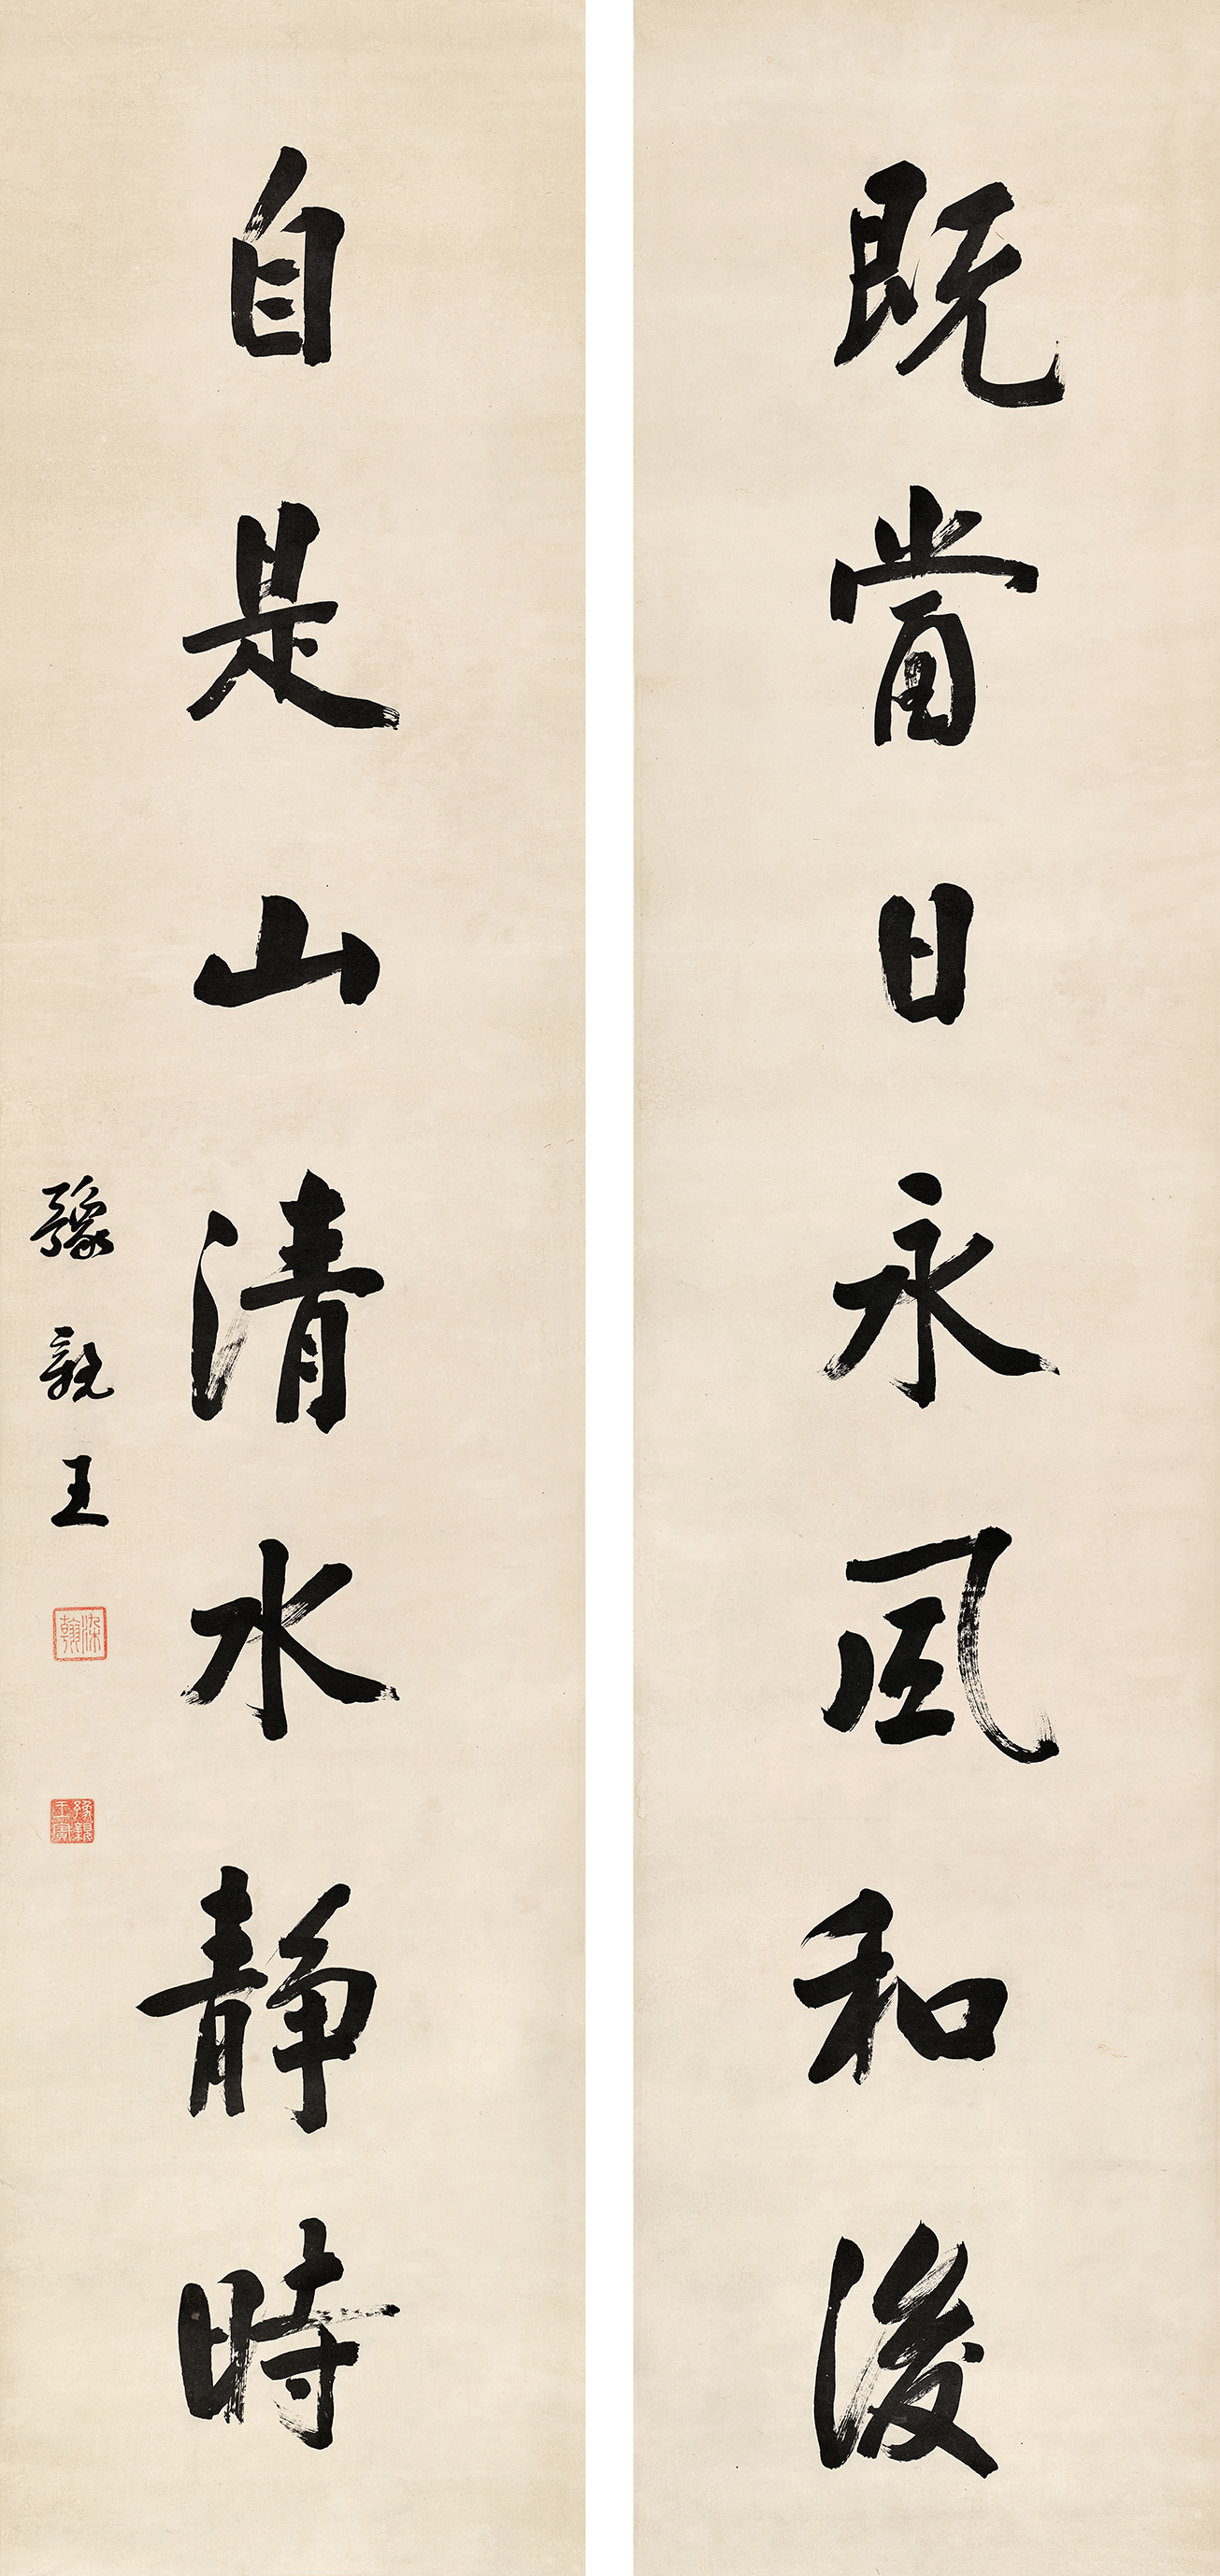 既當日永風和後
自是山清水靜時
豫親王
染翰
豫親王寶